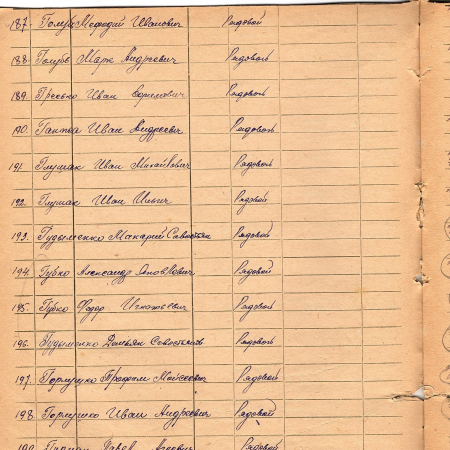 187. Голуб Мефодий Иванович Рядовой
188. Голубь Марк Андреевич Рядовой
189. Гресько Иван Ефимович Рядовой
190. Гаптва Иван Андреевич Рядовой
191. Глушак Иван Михайлович Рядовой
192. Глушак Иван Ильич Рядовой
193. Гудыменко Макарий Савостьян Рядовой
194. Губко Александр Рядовой
195. Губко Федор Игнатьевич Рядовой
196. Гудыменко Демьян Савостьянов Рядовой
197. Горпушко Трофим Моисеевич Рядовой
198. Горпушко Иван Андреевич Рядовой
199. Павел Рядовой